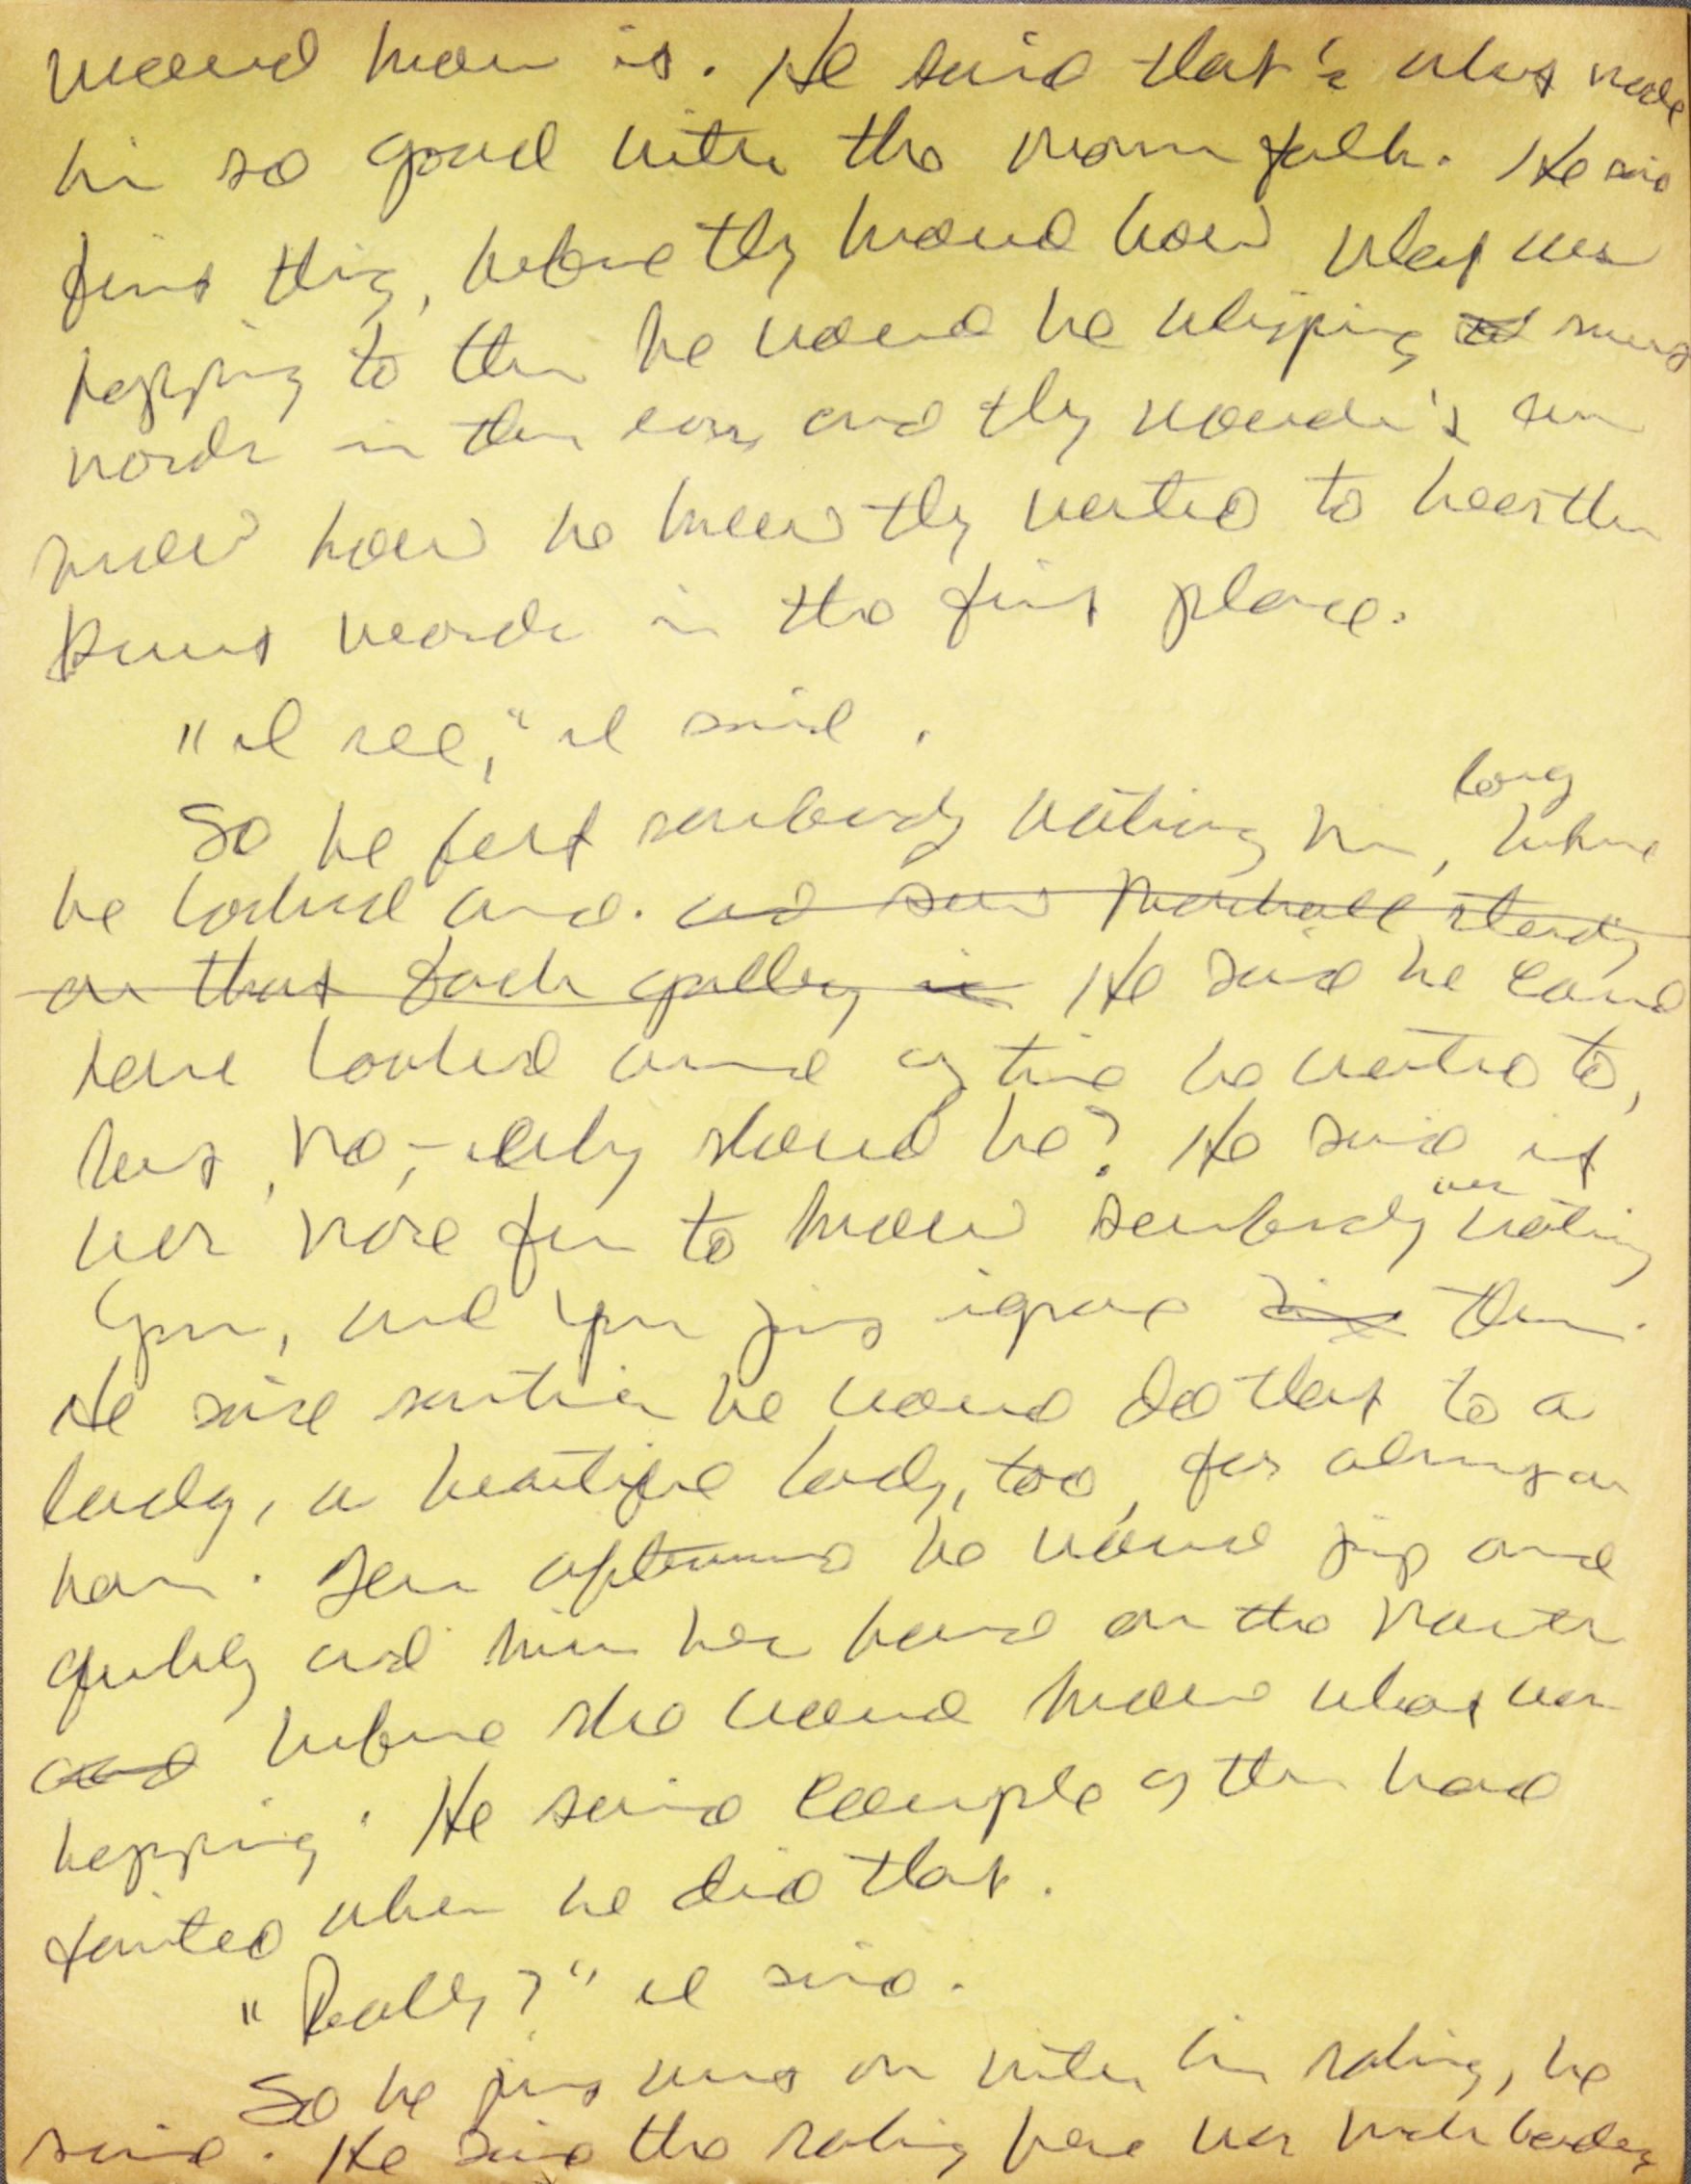 woman is. He said that's what made
him so good with the women folk. He said
first thing, before they would know what was
happing to them he would be whisping sweet
words in their ears, and they wouldn't even
know how he knew they wanted to hear them
sweet words in the first place.
"I see," I said.
So he felt somebody watching him, long before
he looked around. and saw Marshall standing
on that back gallery He said he could
have looked around any time he wanted to,
but, no, — why should he? He said it
was more fun to know somebody was watching
you, and you just ignore them.
He said sometimes he would do that to a
lady, a beautiful lady, too, for almost an
hour. Then afterwards he would jump around
quickly and him her hand on the mouth
and before she would know what was
happing. He said couple of them had
fainted when he did that.
"Really?" I said.
So he just went on with his raking, he
said. He said the raking there was much